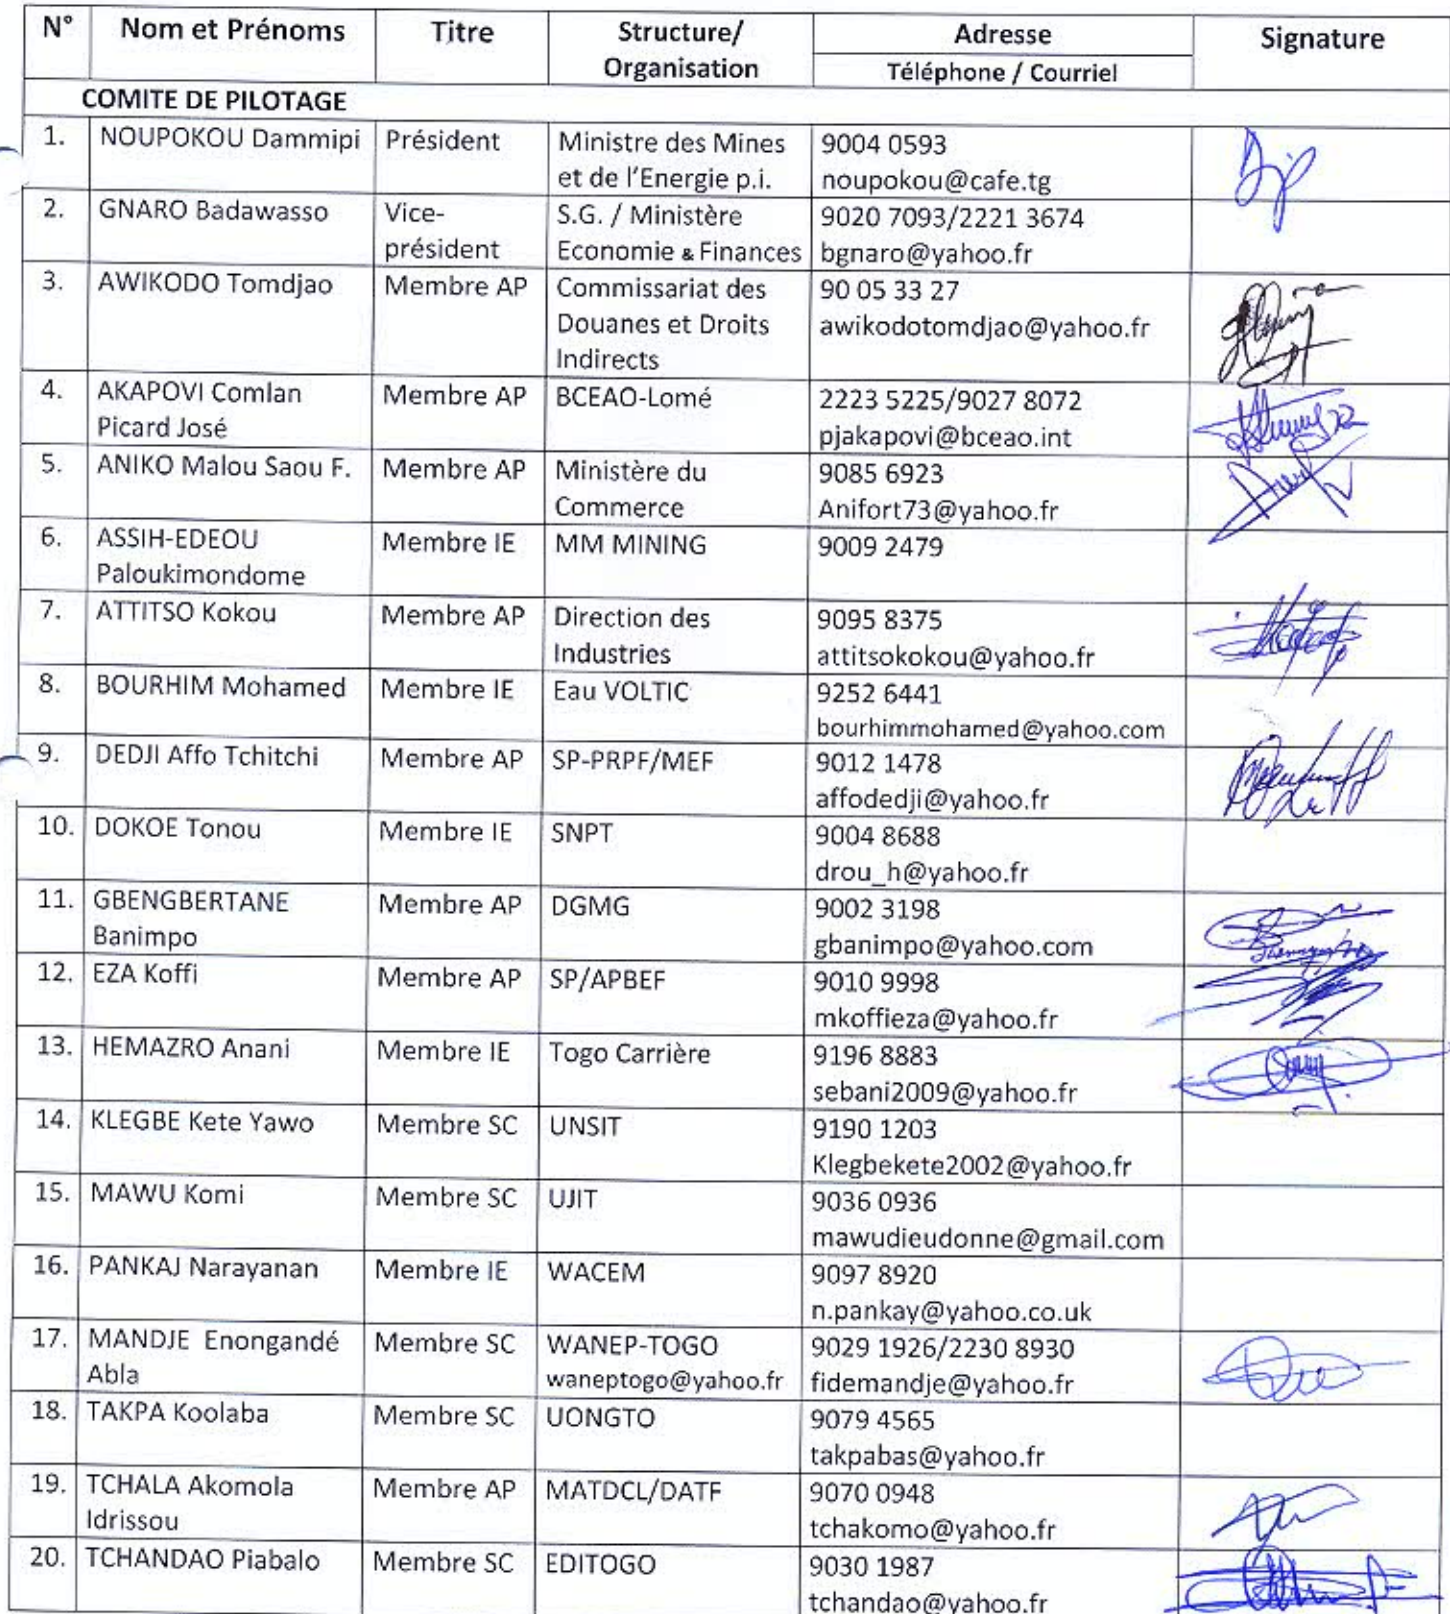 N° Nom et Prénoms Titre Structure/ Organisation Adresse Signature
Téléphone / Courriel
COMITE DE PILOTAGE
1. NOUPOKOU Dammipi Président Ministre des Mines 9004 0593
et de l'Energie p.i. noupokou@cafe.tg
2. GNARO Badawasso Vice- S.G. / Ministère 9020 7093/2221 3674
président Economie & Finances bgnaro@yahoo.fr
3. AWIKODO Tomdjao Membre AP Commissariat des 90 05 33 27
Douanes et Droits awikodotomdjao@yahoo.fr
Indirects
4. AKAPOVI Comlan Membre AP BCEAO-Lomé 2223 5225/9027 8072
Picard José pjakapovi@bceao.int
5. ANIKO Malou Saou F. Membre AP Ministère du 9085 6923
Commerce Anifort73@yahoo.fr
6. ASSIH-EDEOU Membre IE MM MINING 9009 2479
Paloukimondome
7. ATTITSO Kokou Membre AP Direction des 9095 8375
Industries attitsokokou@yahoo.fr
8. BOURHIM Mohamed Membre IE Eau VOLTIC 9252 6441
bourhimmohamed@yahoo.com
9. DEDJI Affo Tchitchi Membre AP SP-PRPF/MEF 9012 1478
affodedji@yahoo.fr
10. DOKOE Tonou Membre IE SNPT 9004 8688
drou_h@yahoo.fr
11. GBENGBERTANE Membre AP DGMG 9002 3198
Banimpo gbanimpo@yahoo.com
12. EZA Koffi Membre AP SP/APBEF 9010 9998
mkoffieza@yahoo.fr
13. HEMAZRO Anani Membre IE Togo Carrière 9196 8883
sebani2009@yahoo.fr
14. KLEGBE Kete Yawo Membre SC UNSIT 9190 1203
Klegbekete2002@yahoo.fr
15. MAWU Komi Membre SC UJIT 9036 0936
mawudieudonne@gmail.com
16. PANKAJ Narayanan Membre IE WACEM 9097 8920
n.pankay@yahoo.co.uk
17. MANDJE Enongandé Membre SC WANEP-TOGO 9029 1926/2230 8930
Abla waneptogo@yahoo.fr fidemandje@yahoo.fr
18. TAKPA Koolaba Membre SC UONGTO 9079 4565
takpabas@yahoo.fr
19. TCHALA Akomola Membre AP MATDCL/DATF 9070 0948
Idrissou tchakomo@yahoo.fr
20. TCHANDAO Piabalo Membre SC EDITOGO 9030 1987
tchandao@yahoo.fr